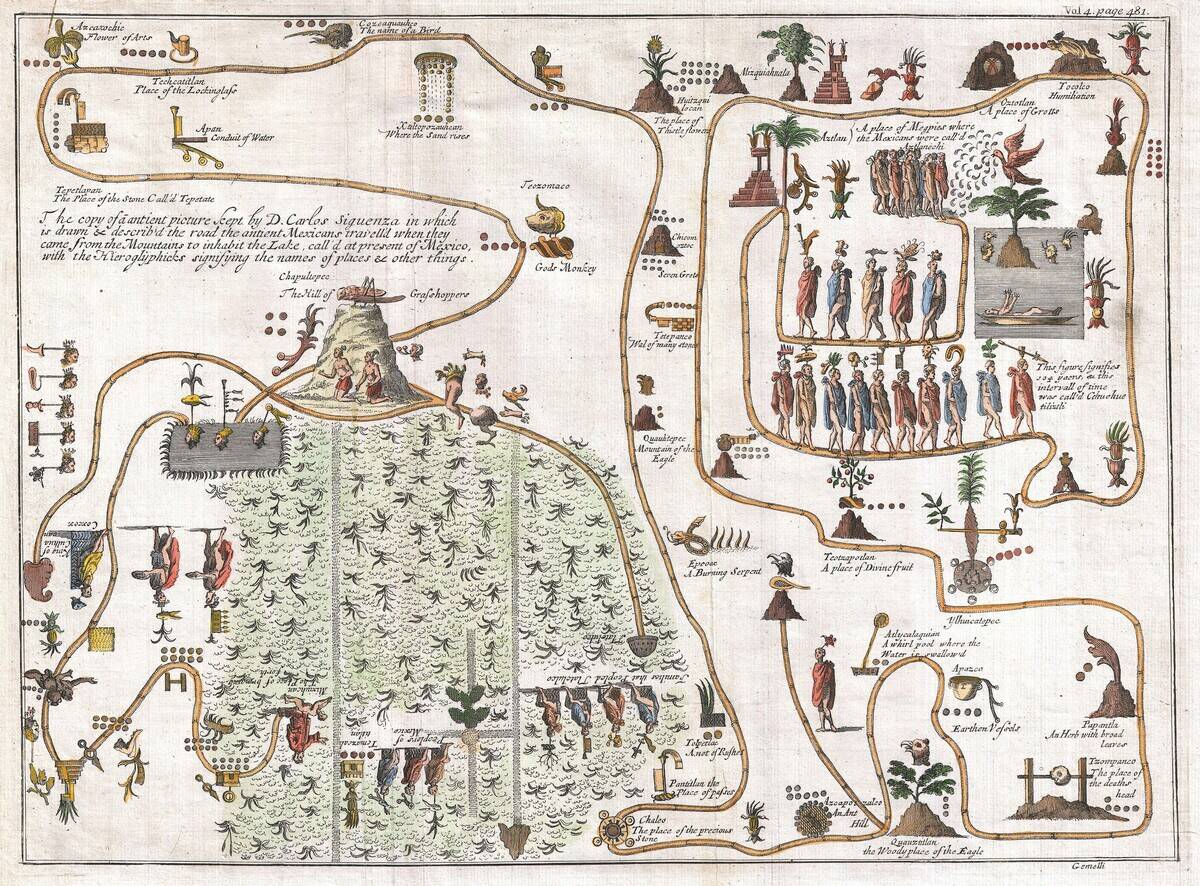 Vol 4. page 481.
Azcaxochic
Flower of Arts
Cozcaquauhco
The name of a Bird
Techcatitlan
Place of the Lockinglass
Apan
Conduit of Water
Xaltepozauhcan
Where the Sand rises
Huitzquilocan
The place of
Thistle flowers
Mizquiahuala
Oztotlan
A place of Grotts
Tocolco
Humiliation
Aztlan
A place of Megpies where
the Mexicans were call'd
Aztlanechi
Tepetlapan
The Place of the Stone Call'd Tepetate
Teozomaco
Gods Monkey
The copy of a antient picture kept by D. Carlos Siguenza in which
is drawn & describ'd the road the antient Mexicans travell'd when they
came from the Mountains to inhabit the Lake, call'd at present of Mexico,
with the Hieroglyphicks signifying the names of places & other things.
Chapultepec
The Hill of Grasshoppers
Chicomoztoc
Seven Grots
Tetepanco
Wal of many stones
Quauhtepec
Mountain of the
Eagle
This figure signifies
104 years, & this
intervall of time
was call'd
Teotzapotlan
A place of Divine fruit
Epcoac
A Burning Serpent
King of
Culua
Coxcox
Ylhuicatepec
Atlycalaquian
A whirl pool where the
Water is swallow'd
Apazco
Earthen Vessels
Papantla
An Herb with broad
leaves
Tzompanco
The place of
the deaths
head
Families that Peopled Tlatelulco
Peoplers of
Mexico
Tolpetlac
A not of Rushes
Pantitlan the
Place of passes
Chalco
The place of the precious
Stone
Azcapotzalco
An Ant
Hill
Quauhtitlan
the Woody place of the Eagle
Gemelli